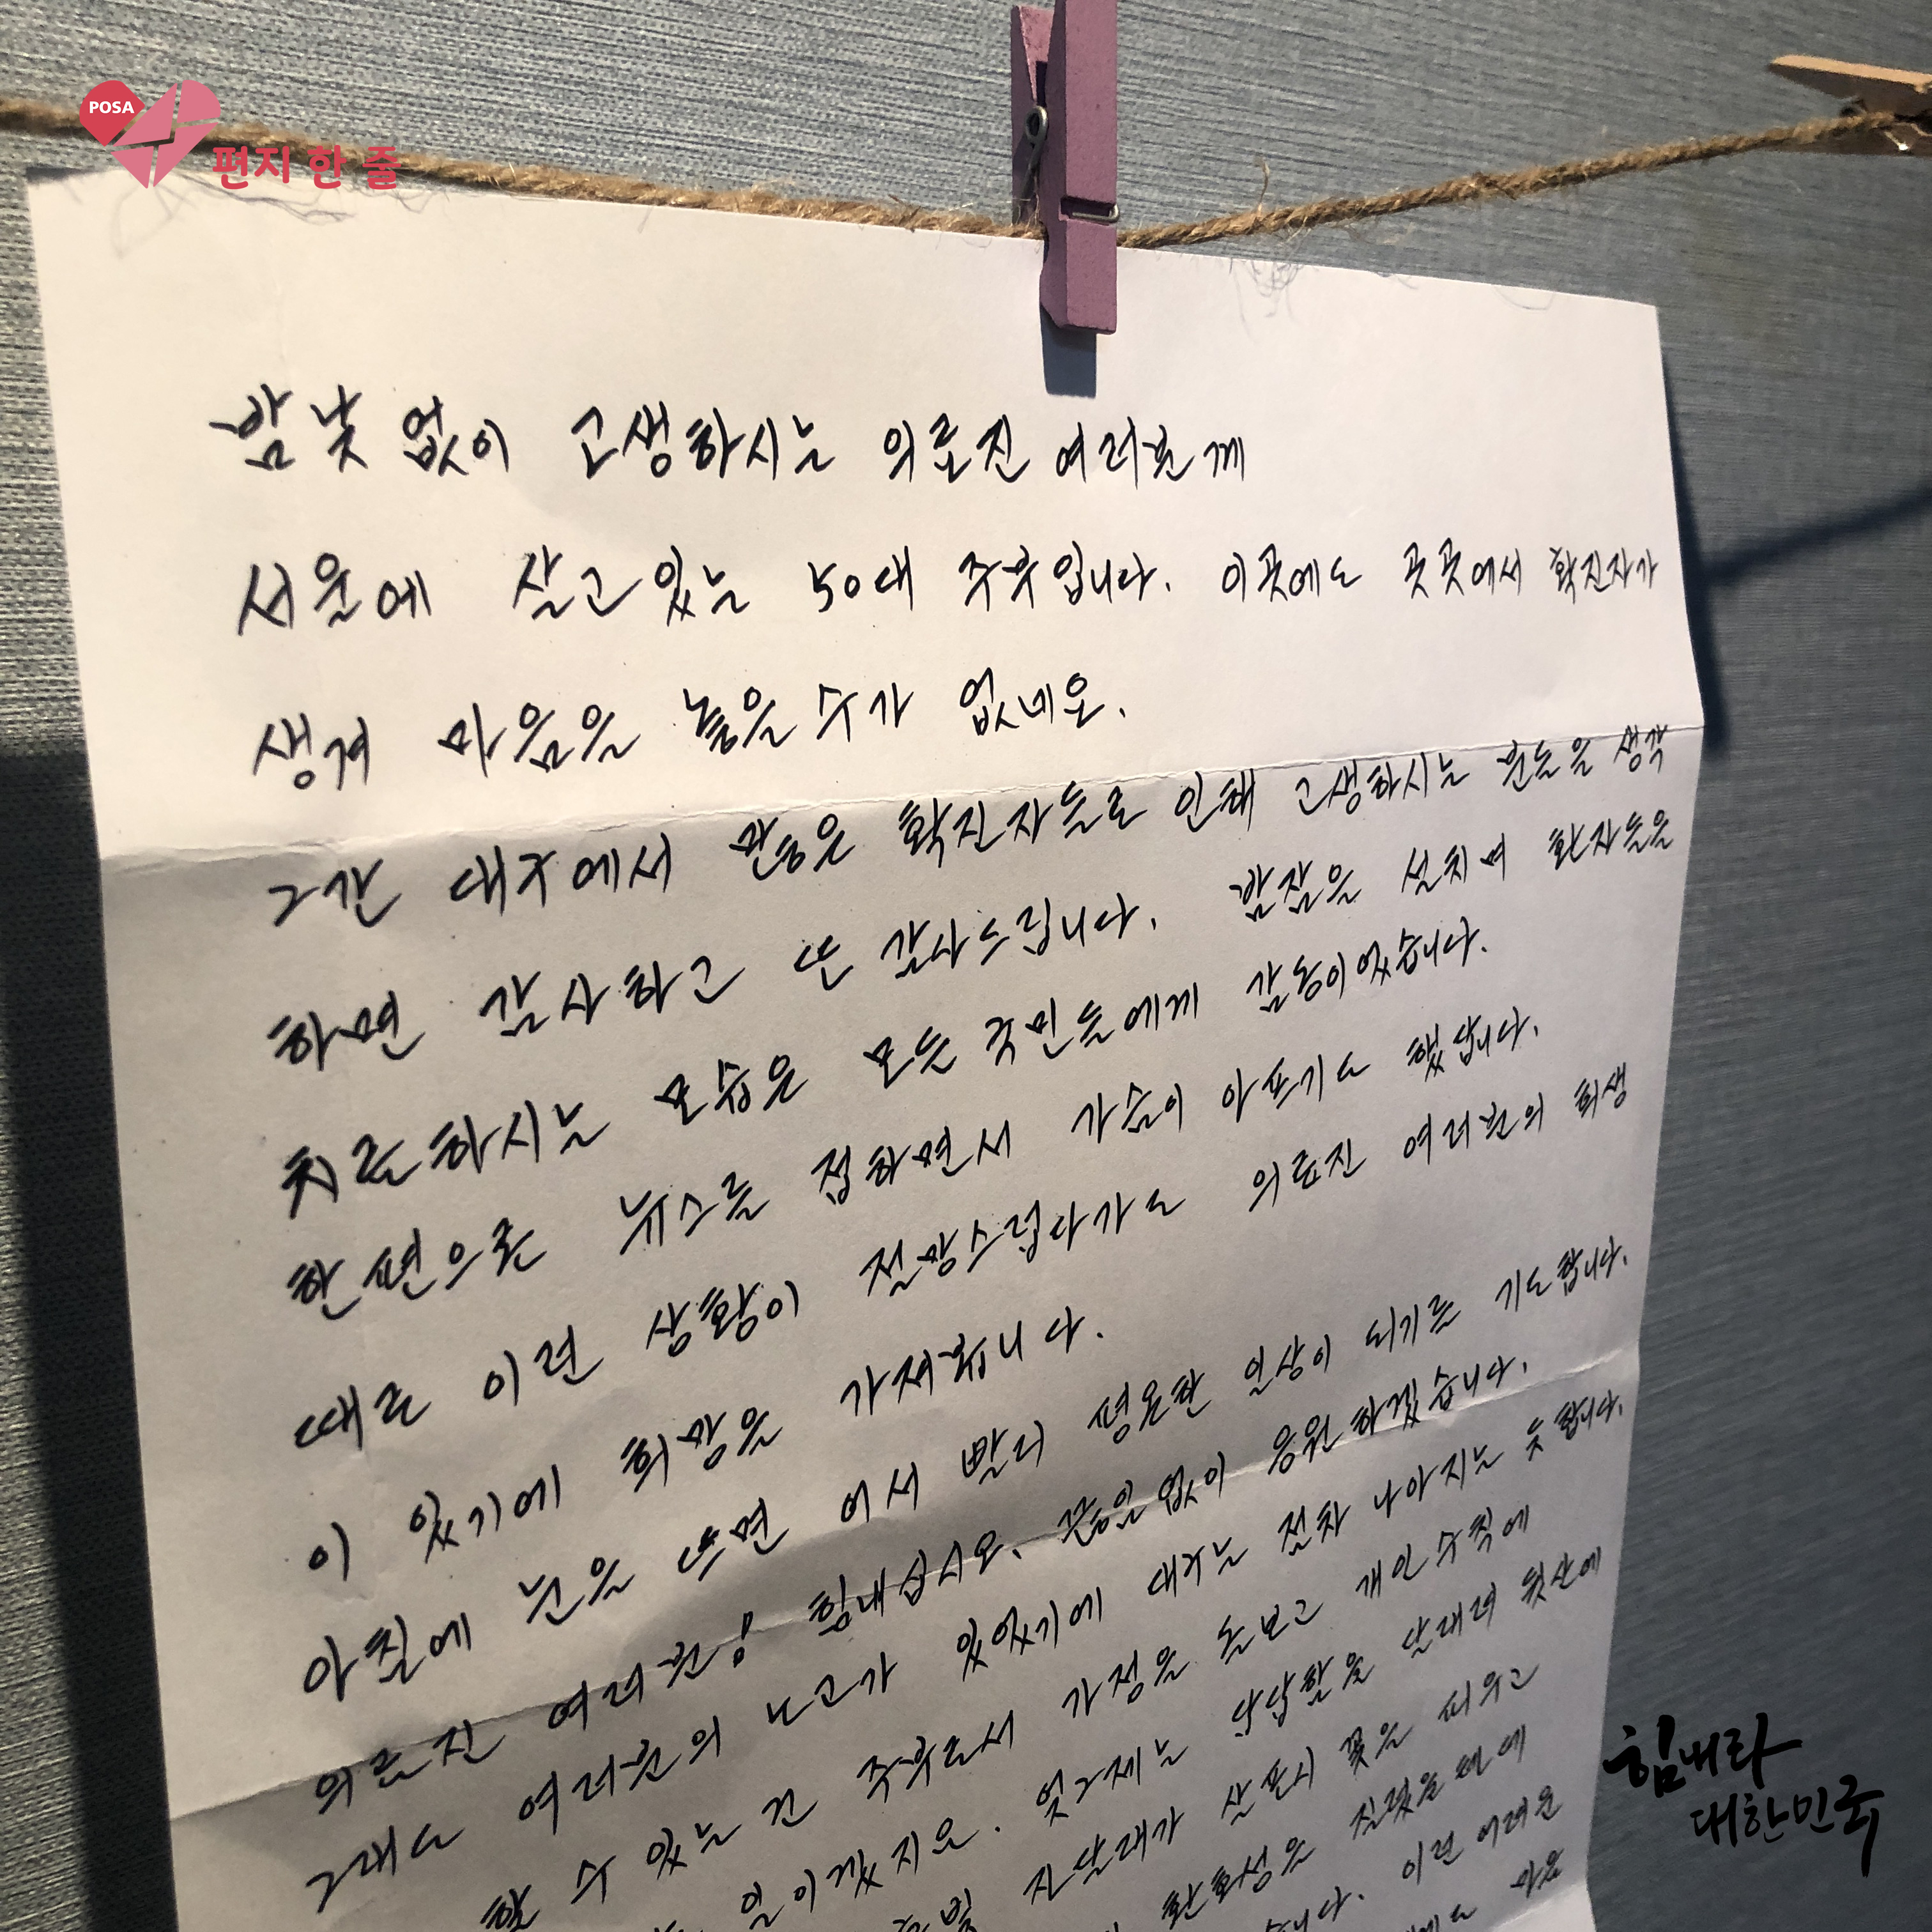 POSA
편지 한 줄
밤낮 없이 고생하시는 의료진 여러분께
서울에 살고있는 50대 주부입니다. 이곳에도 곳곳에서 확진자가
생겨 마음을 놓을수가 없네요.
그간 대구에서 많은 확진자들로 인해 고생하시는 분들을 생각
하면 감사하고 또 감사드립니다. 밤잠을 설치며 환자들을
치료하시는 모습은 모든 국민들에게 감동이었습니다.
한편으로 뉴스를 접하면서 가슴이 아프기도 했답니다.
때로 이런 상황이 절망스럽다가도 의료진 여러분의 희생
이 있기에 희망을 가져봅니다.
아침에 눈을 뜨면 어서 빨리 평온한 일상이 되기를 기도합니다.
의료진 여러분! 힘내십시오. 끊임없이 응원하겠습니다.
그래도 여러분의 노고가 있었기에 대구는 점차 나아지는 듯 합니다.
할 수 있는건 주부로서 가정을 돌보고 개인수칙에
일이겠지요. 엊그제는 답답함을 달래려 뒷산에
진달래가 살포시 꽃을 피우고
환호성을 질렀을텐데
이런 어려운
마음
힘내라
대한민국